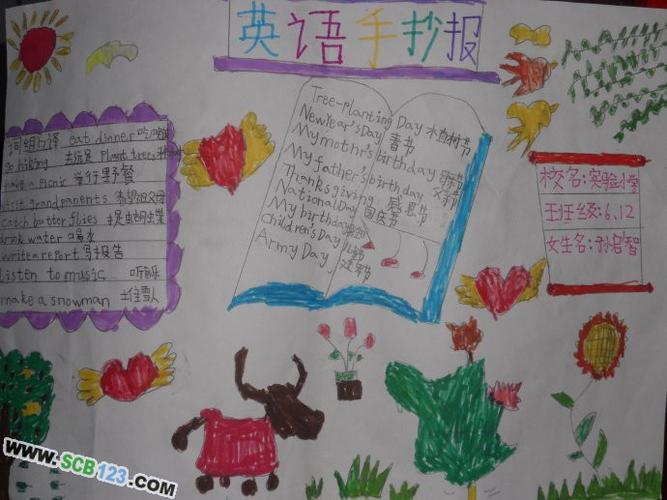 英语手抄报
词组与译 eat dinner 吃
go hiking 去玩 Plant trees
have a Picnic 举行野餐
visit grandparents 父母
catch butterflies 捉蝴蝶
drink water 喝水
write a report 写报告
listen to music 听音乐
make a snowman 堆雪人
Tree-Planting Day 木直树节
NewYear's Day 春节
My mothr's birthday 母亲节
My father's birthday 父亲节
Thanksgiving 感恩节
NationalDay 国庆节
My birthday
Children's Day 儿童节
Army Day 建军节
校名:实验小学
班级:6.12
姓名:孙启智
www.SCB123.com